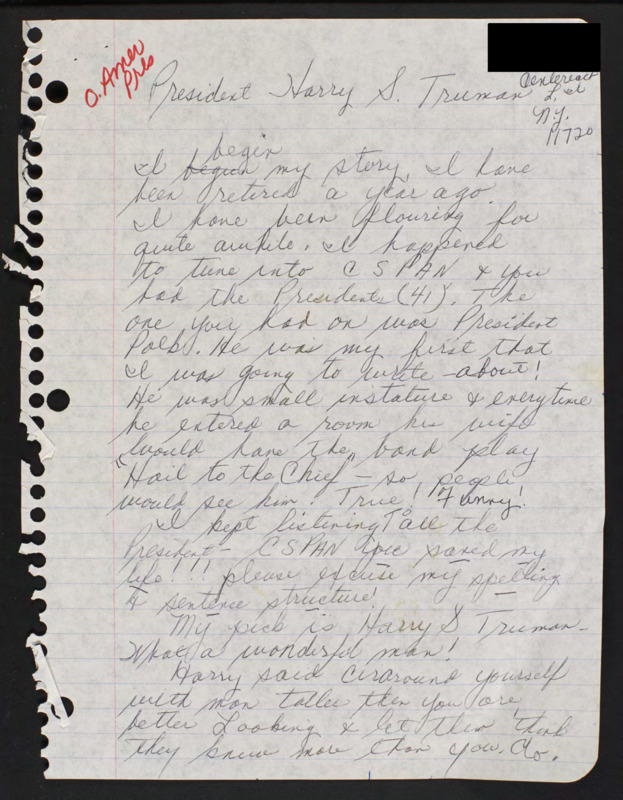 O. Amer
Pres
President Harry S. Truman
Centereach
L. I
N.Y.
11720
begin
I begun my story, I have
been retired a year ago.
I have been flouring for
quite awhile. I happened
to tune into C SPAN & you
had the Presidents (41). The
one you had on was President
Polk. He was my first that
I was going to write about!
He was small instature & everytime
he entered a room his wife
would have the band play
"Hail to the Chief" - so people
would see him! True! Funny!
I kept listening To all the
President - CSPAN you saved my
life!!! please excuse my spelling
& sentence structure!
My pick is Harry S Truman -
What a wonderful man!
Harry said suraround yourself
with man taller then you are,
better Looking & let them think
they know more than you. Do.